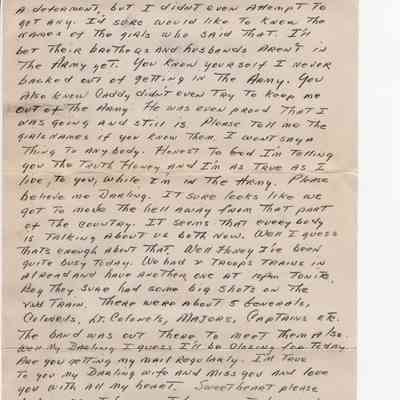 A deforment, but I didnt even Attempt to
get any. I'd sure would like to know the
names of the girls who said that. I'll
bet their brothers and husbands Aren't in
the Army yet. You know yourself I never
backed out of getting in the Army. You
Also know Daddy didn't even try to keep me
out of the Army He was even proud that I
was going and still is. Please tell me the
girls names if you know them. I wont say a
thing to any body. Honest to God I'm telling
you the truth Honey, and I'm as true as I
live, to you, while I'm in the Army. Please
believe me Darling. It sure looks like we
got to move the hell away from that part
of the country. It seems that every body
is talking about us both now. Well I guess
thats enough about that. Well Honey I've been
quite busy today. We had 2 troops trains in
Already and have another one at tonite.
Boy they sure had some big shots on the
2nd train. There were about 5 Generals,
Colonels, Lt. Colonels, Majors, Captains etc.
The band was out there to meet them Also.
Well My Darling I guess I'll be closing for today.
Are you getting my mail regularly. I'm true
to you my Darling wife and miss you and love
you with all my heart. Sweetheart please